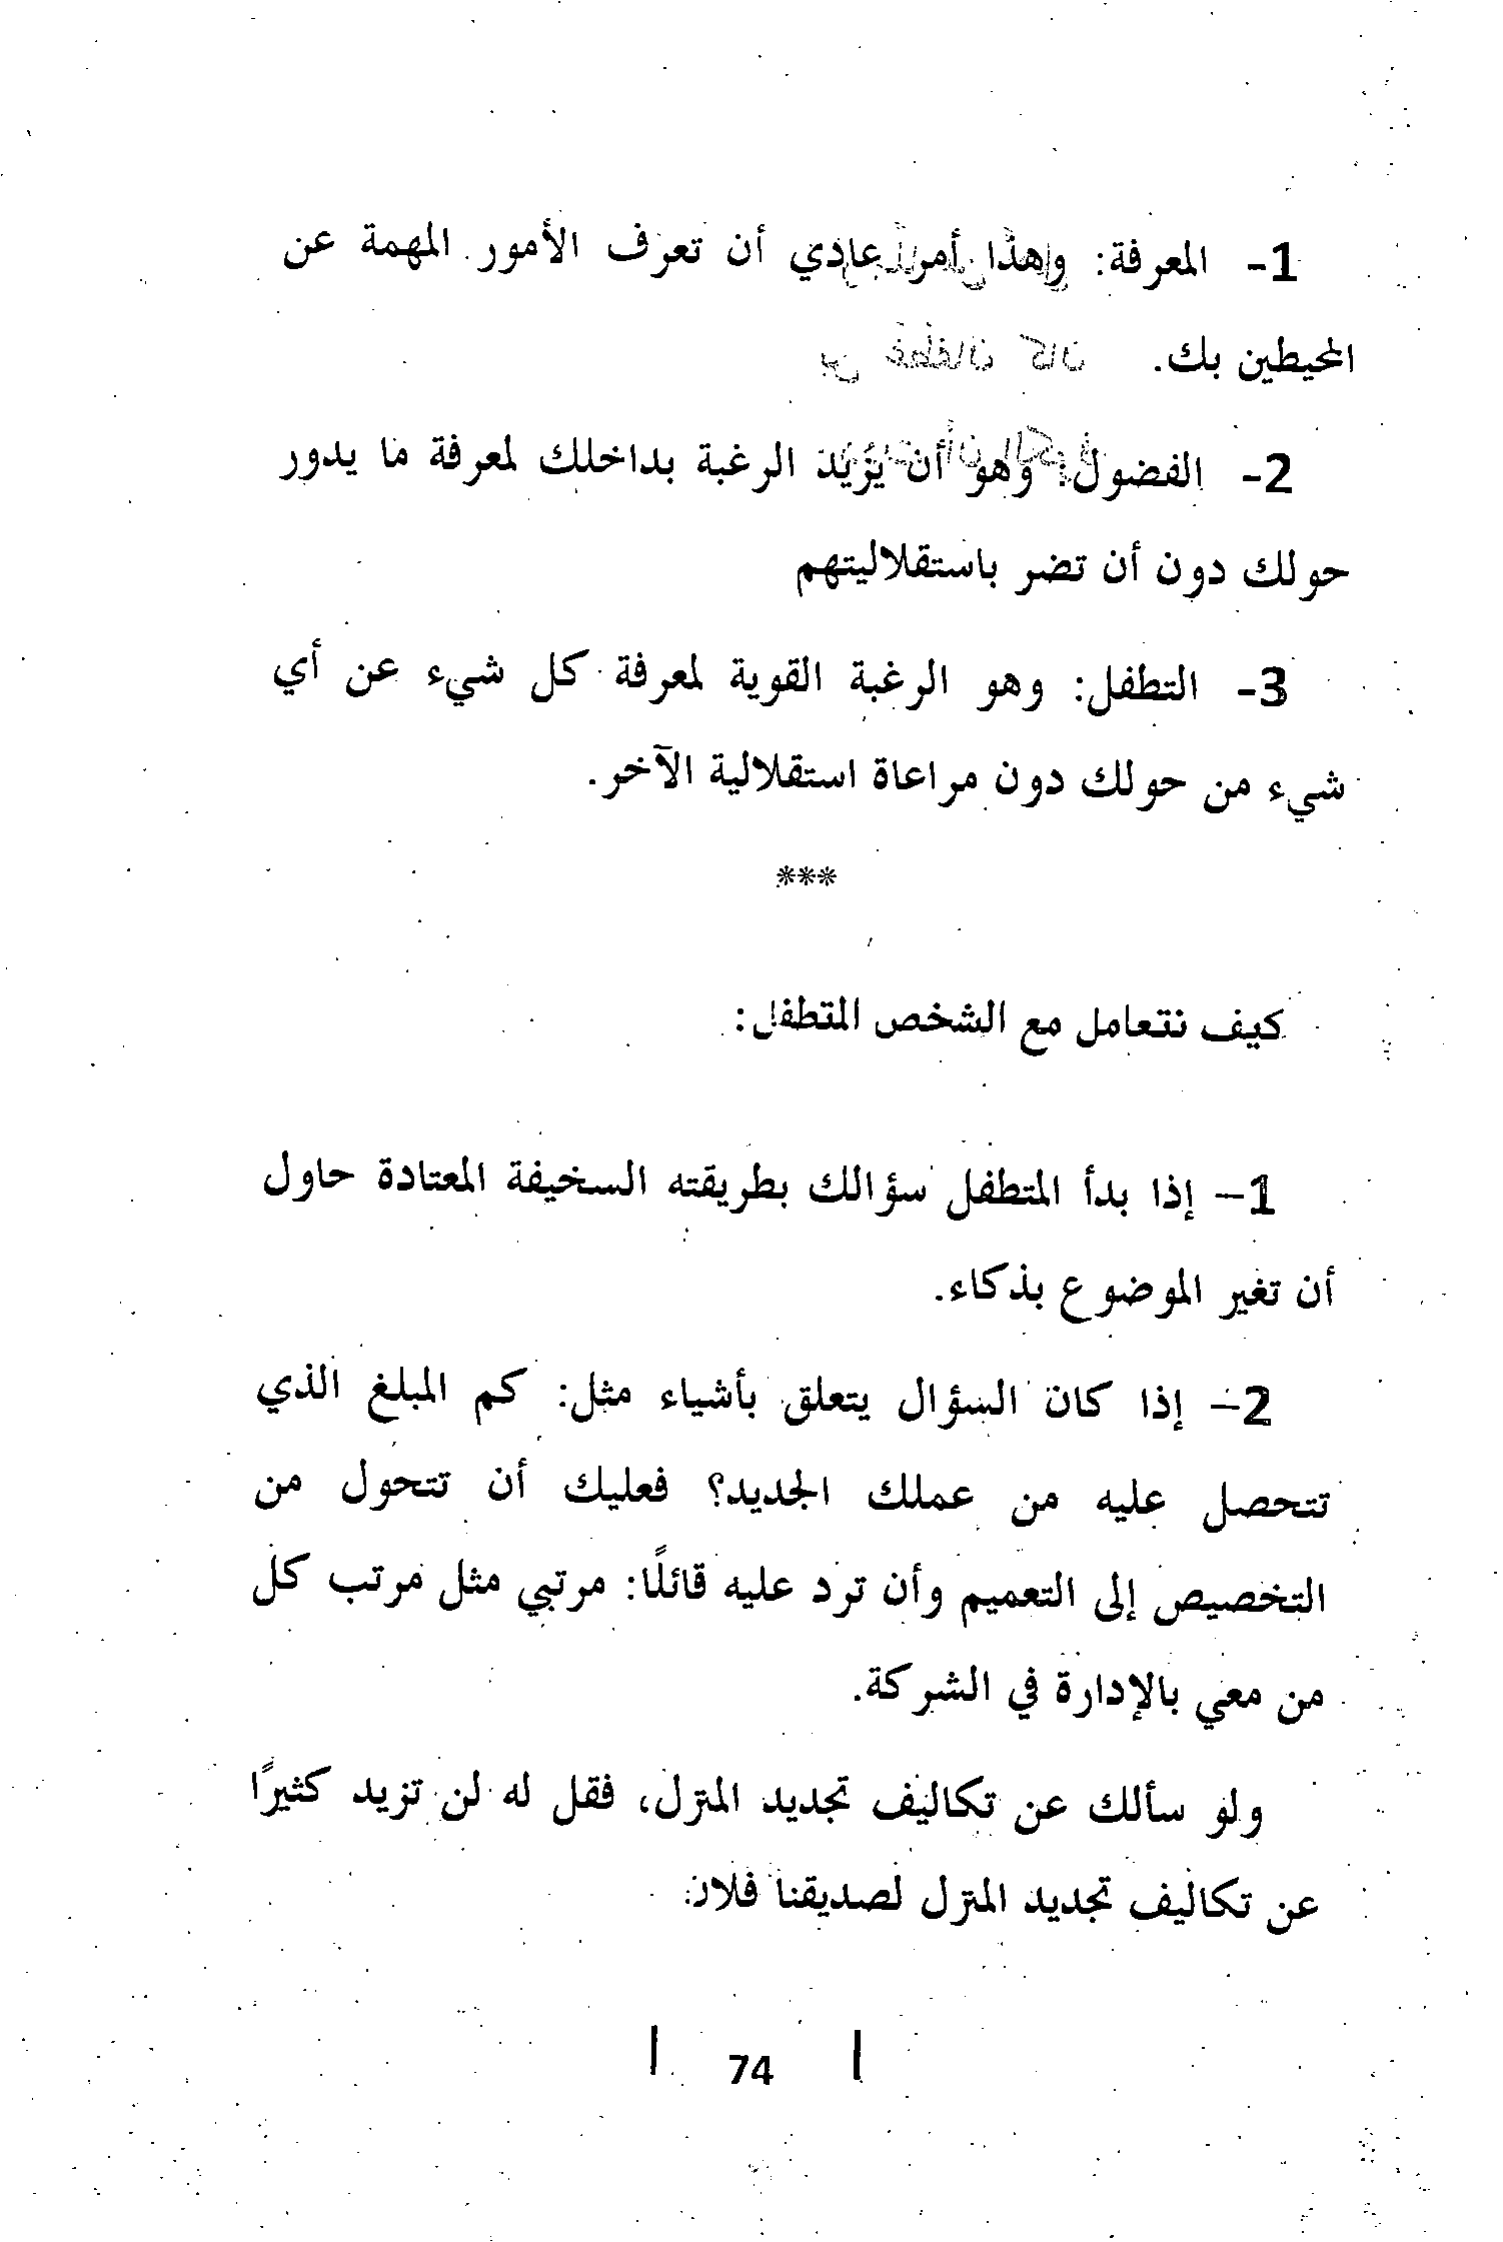 1- المعرفة: وهذا أمر عادي أن تعرف الأمور المهمة عن
المحيطين بك.
2- الفضول: وهو أن يزيد الرغبة بداخلك لمعرفة ما يدور
حولك دون أن تضر باستقلاليتهم
3- التطفل: وهو الرغبة القوية لمعرفة كل شيء عن أي
شيء من حولك دون مراعاة استقلالية الآخر.
***
كيف نتعامل مع الشخص المتطفل:
1– إذا بدأ المتطفل سؤالك بطريقته السخيفة المعتادة حاول
أن تغير الموضوع بذكاء.
2– إذا كان السؤال يتعلق بأشياء مثل: كم المبلغ الذي
تتحصل عليه من عملك الجديد؟ فعليك أن تتحول من
التخصيص إلى التعميم وأن ترد عليه قائلًا: مرتبي مثل مرتب كل
من معي بالإدارة في الشركة.
ولو سألك عن تكاليف تجديد المنزل، فقل له لن تزيد كثيرًا
عن تكاليف تجديد المنزل لصديقنا فلان
74